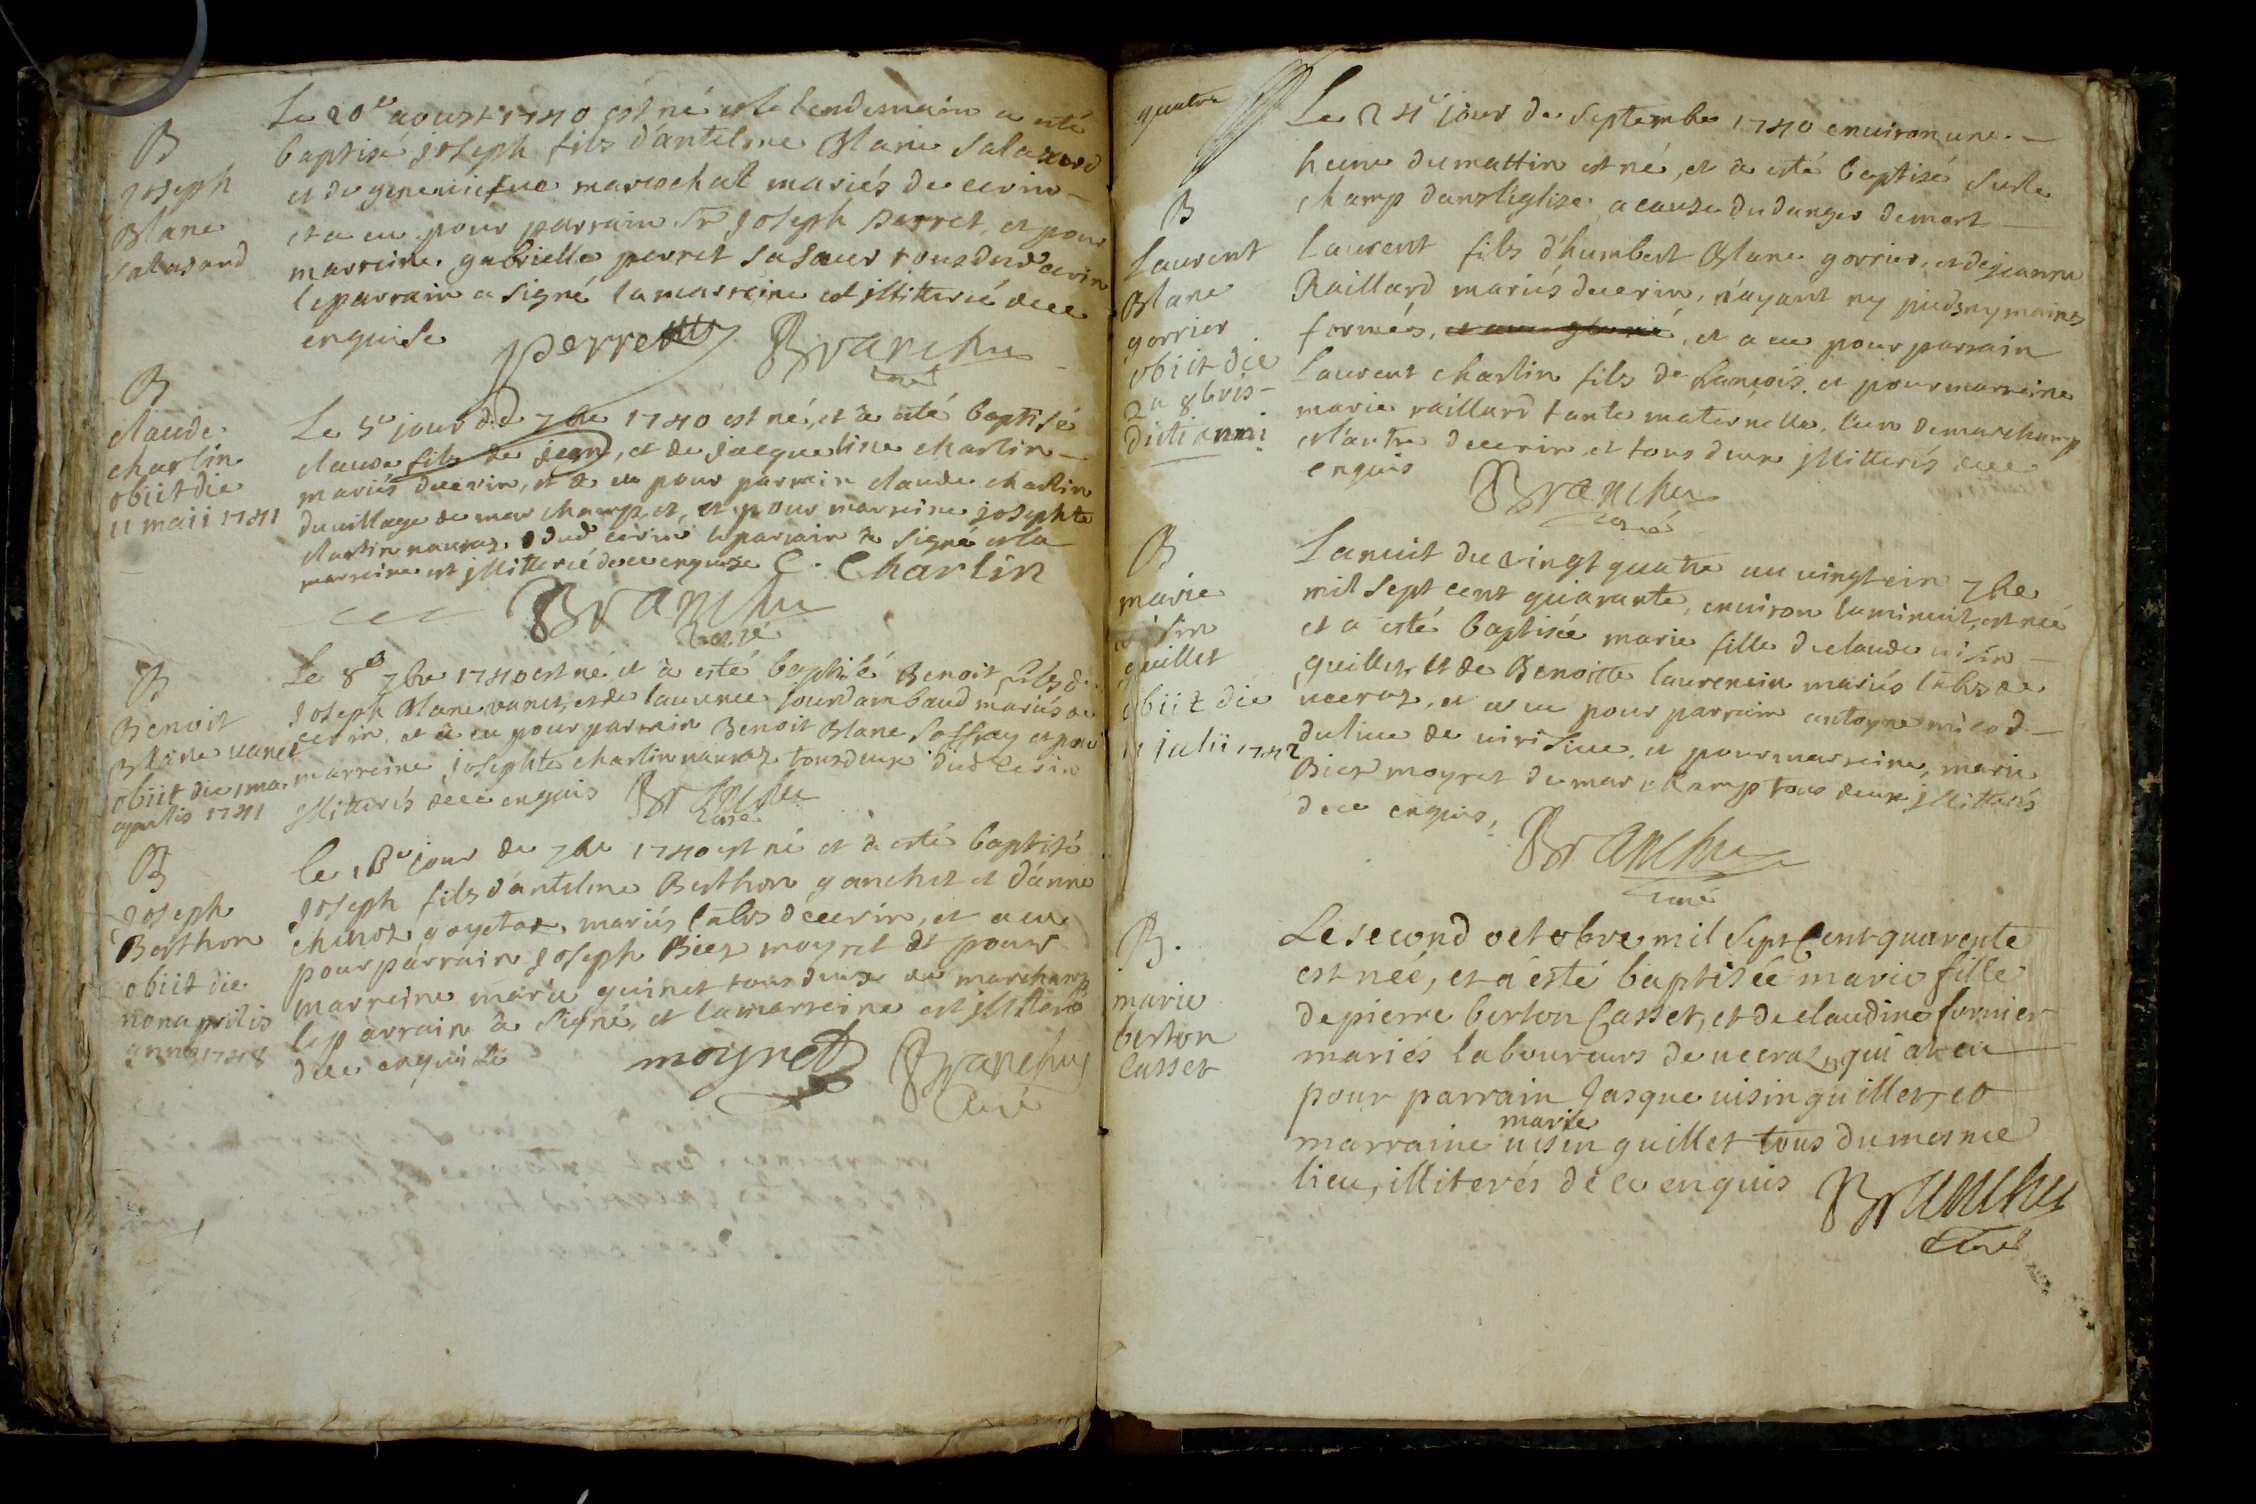 B
Joseph
Blanc
Salazard
Le 20e aoust 1740 est né et le lendemain a esté
baptisé Joseph fils d'antelme Blanc Salazard
et de geneviefue marcochat mariés de cerin
et a eu pour parrain Sr Joseph perret, et pour
marreine gabrielle perret sa sœur tous deux de cerin
le parrain a signé la marreine est illitterée de ce
enquise
perret Branchu
curé
B
claude
charlin
obiit die
11 maii 1741
Le 5e jour de 7bre 1740 est né, et a esté baptisé
claude fils de jean, et de jacqueline charlin
mariés de cerin, et a eu pour parrain claude charlin
du village de marchamp, et pour marreine josephte
charlin nauraz dud cerin le parrain a signé et la
marreine est illitterée de ce enquise C. Charlin
Branchu
curé
B
Benoit
Blanc vanet
obiit die 1ma
aprilis 1741
Le 8e 7bre 1740 est né et a esté baptisé Benoit fils de
Joseph Blanc vanet, et de laurence Jourdambaud mariés de
cerin et a eu pour parrain Benoit Blanc Soffray et pour
marreine josephte charlin nauraz tous deux dud cerin
illitterés de ce enquis Branchu
curé
B
Joseph
Berthon
obiit die
nona aprilis
anno 1748
Le 18e jour de 7bre 1740 est né et a esté baptisé
Joseph fils d'antelme Berthon ganchet et d'anne
chinoz goyetaz, mariés labrs de cerin, et a eu
pour parrain Joseph Biez moyret et pour
marreine marie quinet tous deux de marchamp
le parrain a signé, et la marreine est illiteré
de ce enquise
moyret Branchu
Curé
quatre
B
Laurent
Blanc
gorrier
obiit die
2a 8bris
dicti anni
Le 24e jour de Septembre 1740 environ une
heure du mattin est né, et a esté baptisé sur le
champ dans l'église a cause du danger de mort
Laurent fils d'humbert Blanc gorrier, et de jeanne
Raillard mariés de cerin, n'ayant ny pieds ny mains
formés, et a eu pour parrain
Laurent charlin fils de françois et pour marreine
marie raillard tante maternelle, l'un de marchamp
et l'autre de cerin et tous deux illitterés de ce
enquis Branchu
curé
B
marie
visin
guillet
obiit die
11 julii 1742
La nuit du vingt quatre au vingt cin 7bre
mil sept cent quarante, environ la minuit, est née
et a esté baptisée marie fille de claude visin
guillet, et de Benoitte laurencin mariés labrs de
veeraz, et a eu pour parrain antoyne milod
du lieu de virisieu, et pour marreine, marie
Biez moyret de marchamp tous deux illitterés
de ce enquis,
Branchu
curé
B.
marie
berton
Casset
Le second octobre mil sept Cent quarente
est née, et a esté baptisée marie fille
de pierre berton Casset, et de claudine fornier
mariés laboureurs de veeraz, qui a eu
pour parrain Jasque visin guillet, et
marie
marraine visin guillet tous du mesme
lieu, illiterés de ce enquis Branchu
Curé